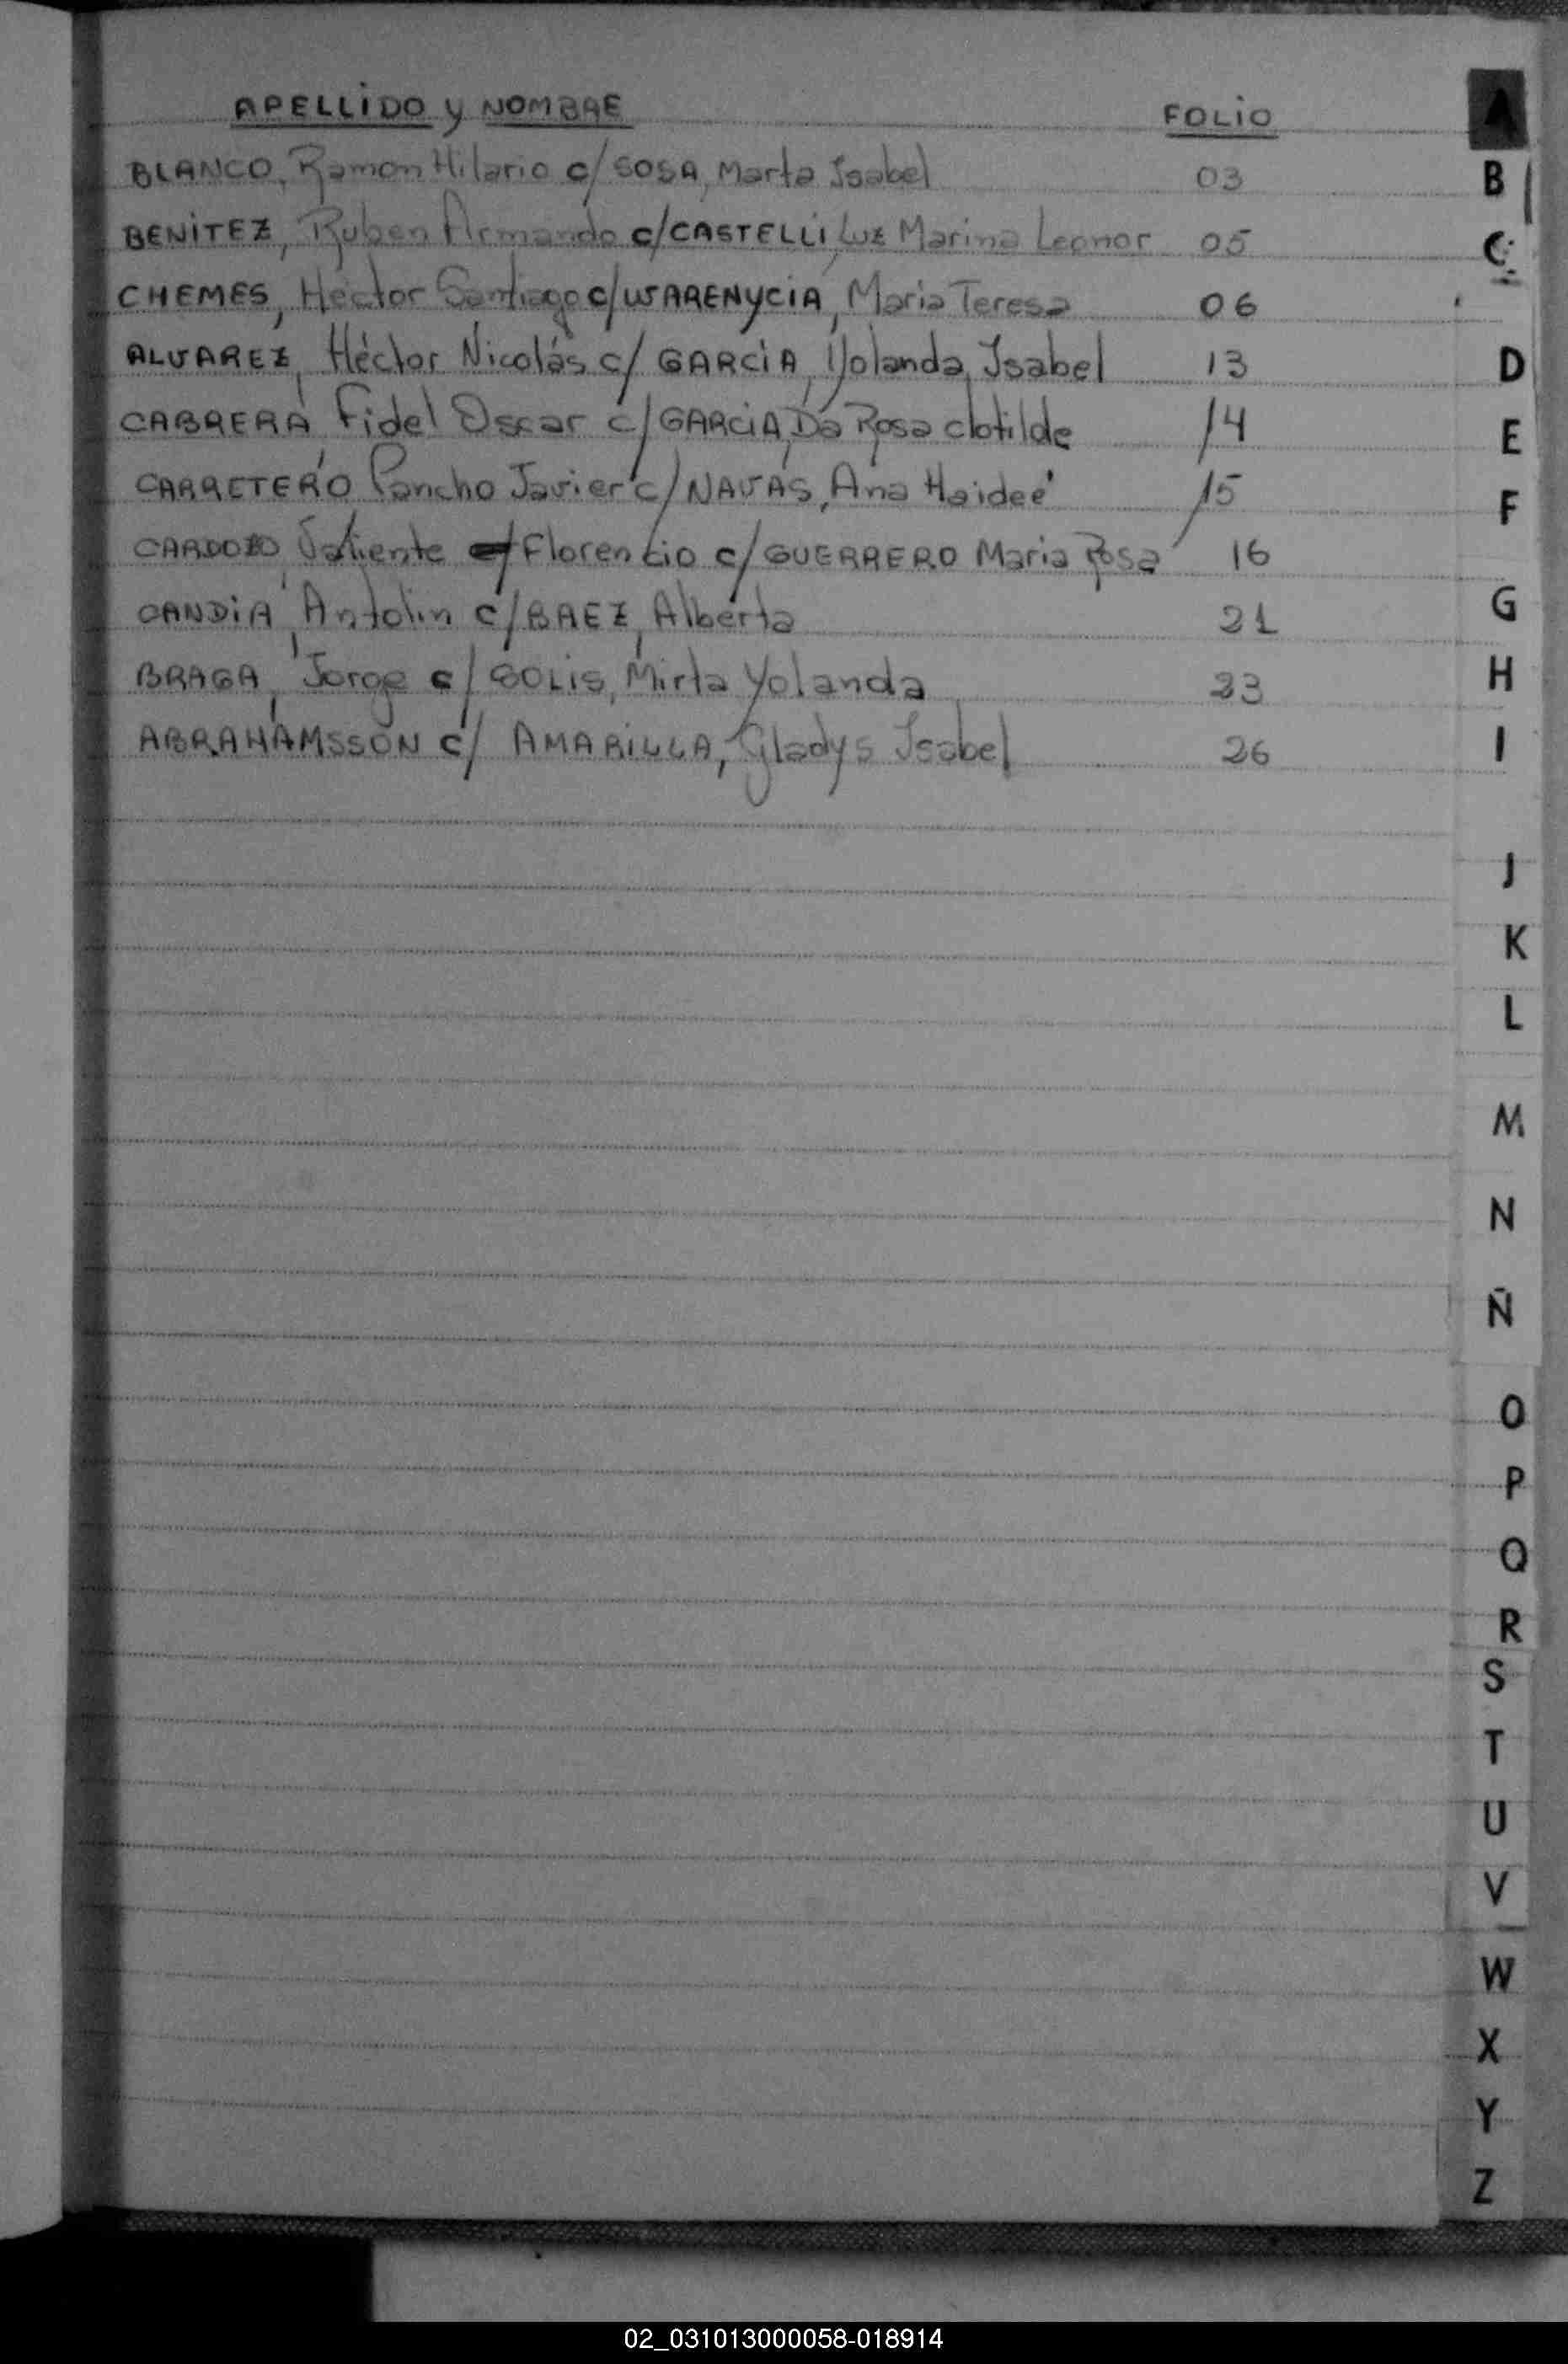 APELLIDO y NOMBRE FOLIO A
BLANCO, Ramon Hilario c/ SOSA, Marta Isabel 03 B
BENITEZ, Ruben Armando c/CASTELLI, Luz Marina Leonor 05 C
CHEMES, Héctor Santiago c/WARENYCIA, Maria Teresa 06
ALVAREZ, Héctor Nicolás c/ GARCIA, Yolanda Isabel 13 D
CABRERA, Fidel Oscar c/GARCIA, Da Rosa Clotilde 14 E
CARRETERO Pancho Javier c/NAVAS, Ana Haideé 15 F
CARDOZO, Valiente Florencio c/GUERRERO Maria Rosa 16
CANDIA, Antolin c/BAEZ, Alberta 21 G
BRAGA, Jorge c/ SOLIS, Mirta Yolanda 23 H
ABRAHAMSSON c/ AMARILLA, Gladys Isabel 26 I
J
K
L
M
N
Ñ
O
P
Q
R
S
T
U
V
W
X
Y
Z
02_031013000058-018914